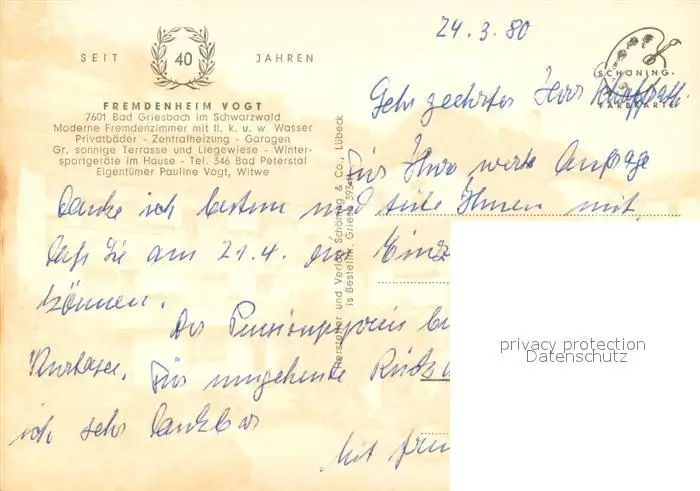 24.3.80
SEIT 40 JAHREN
SCHÖNING-
FARBKARTE
FREMDENHEIM VOGT
7601 Bad Griesbach im Schwarzwald
Moderne Fremdenzimmer mit fl. k. u. w. Wasser
Privatbäder - Zentralheizung - Garagen
Gr. sonnige Terrasse und Liegewiese - Winter-
sportgeräte im Hause - Tel. 346 Bad Peterstal
Eigentümer Pauline Vogt, Witwe
Sehr geehrter Herr
Für Ihre werte Anfrage
danke ich bestens und teile Ihnen mit,
daß Sie am 21.4. die
können.
Der Pensionspreis
Kurtaxe. Für umgehende
ich sehr dankbar
Mit
Hersteller und Verlag Schöning & Co., Lübeck
is Bestellnr. Gries
privacy protection
Datenschutz